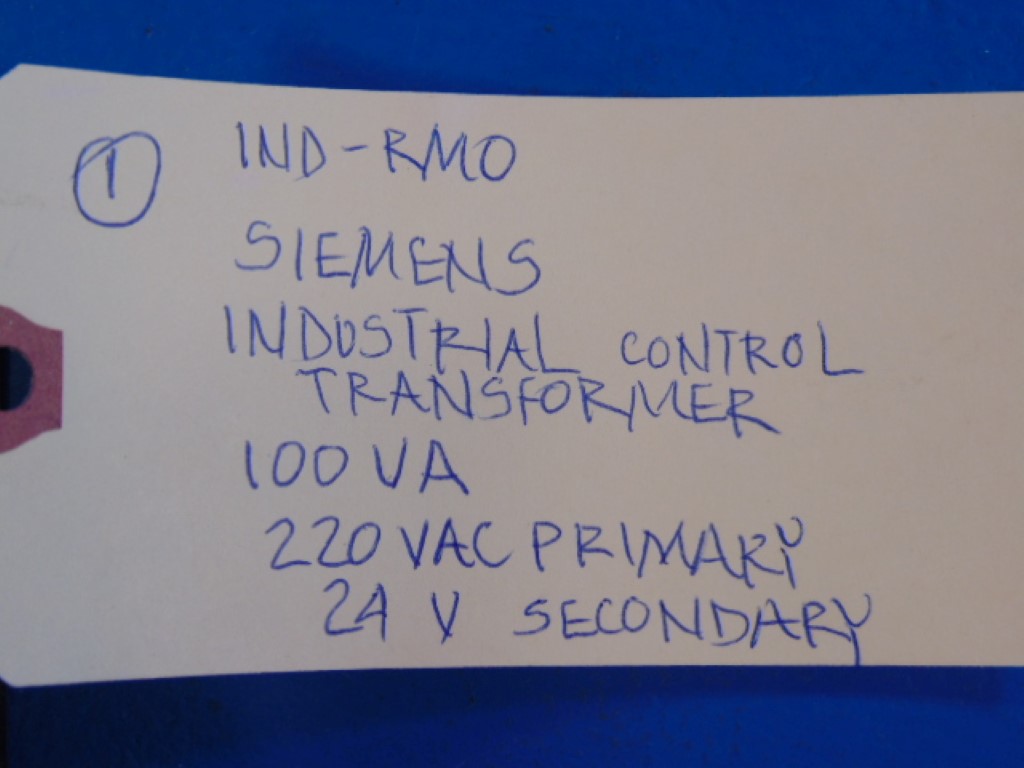 ① IND-RMO
SIEMENS
INDUSTRIAL CONTROL
TRANSFORMER
100 VA
220 VAC PRIMARY
24 V SECONDARY